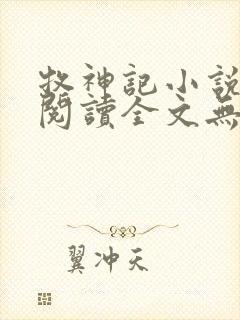 牧神記小說
閱讀全文無
翼冲天